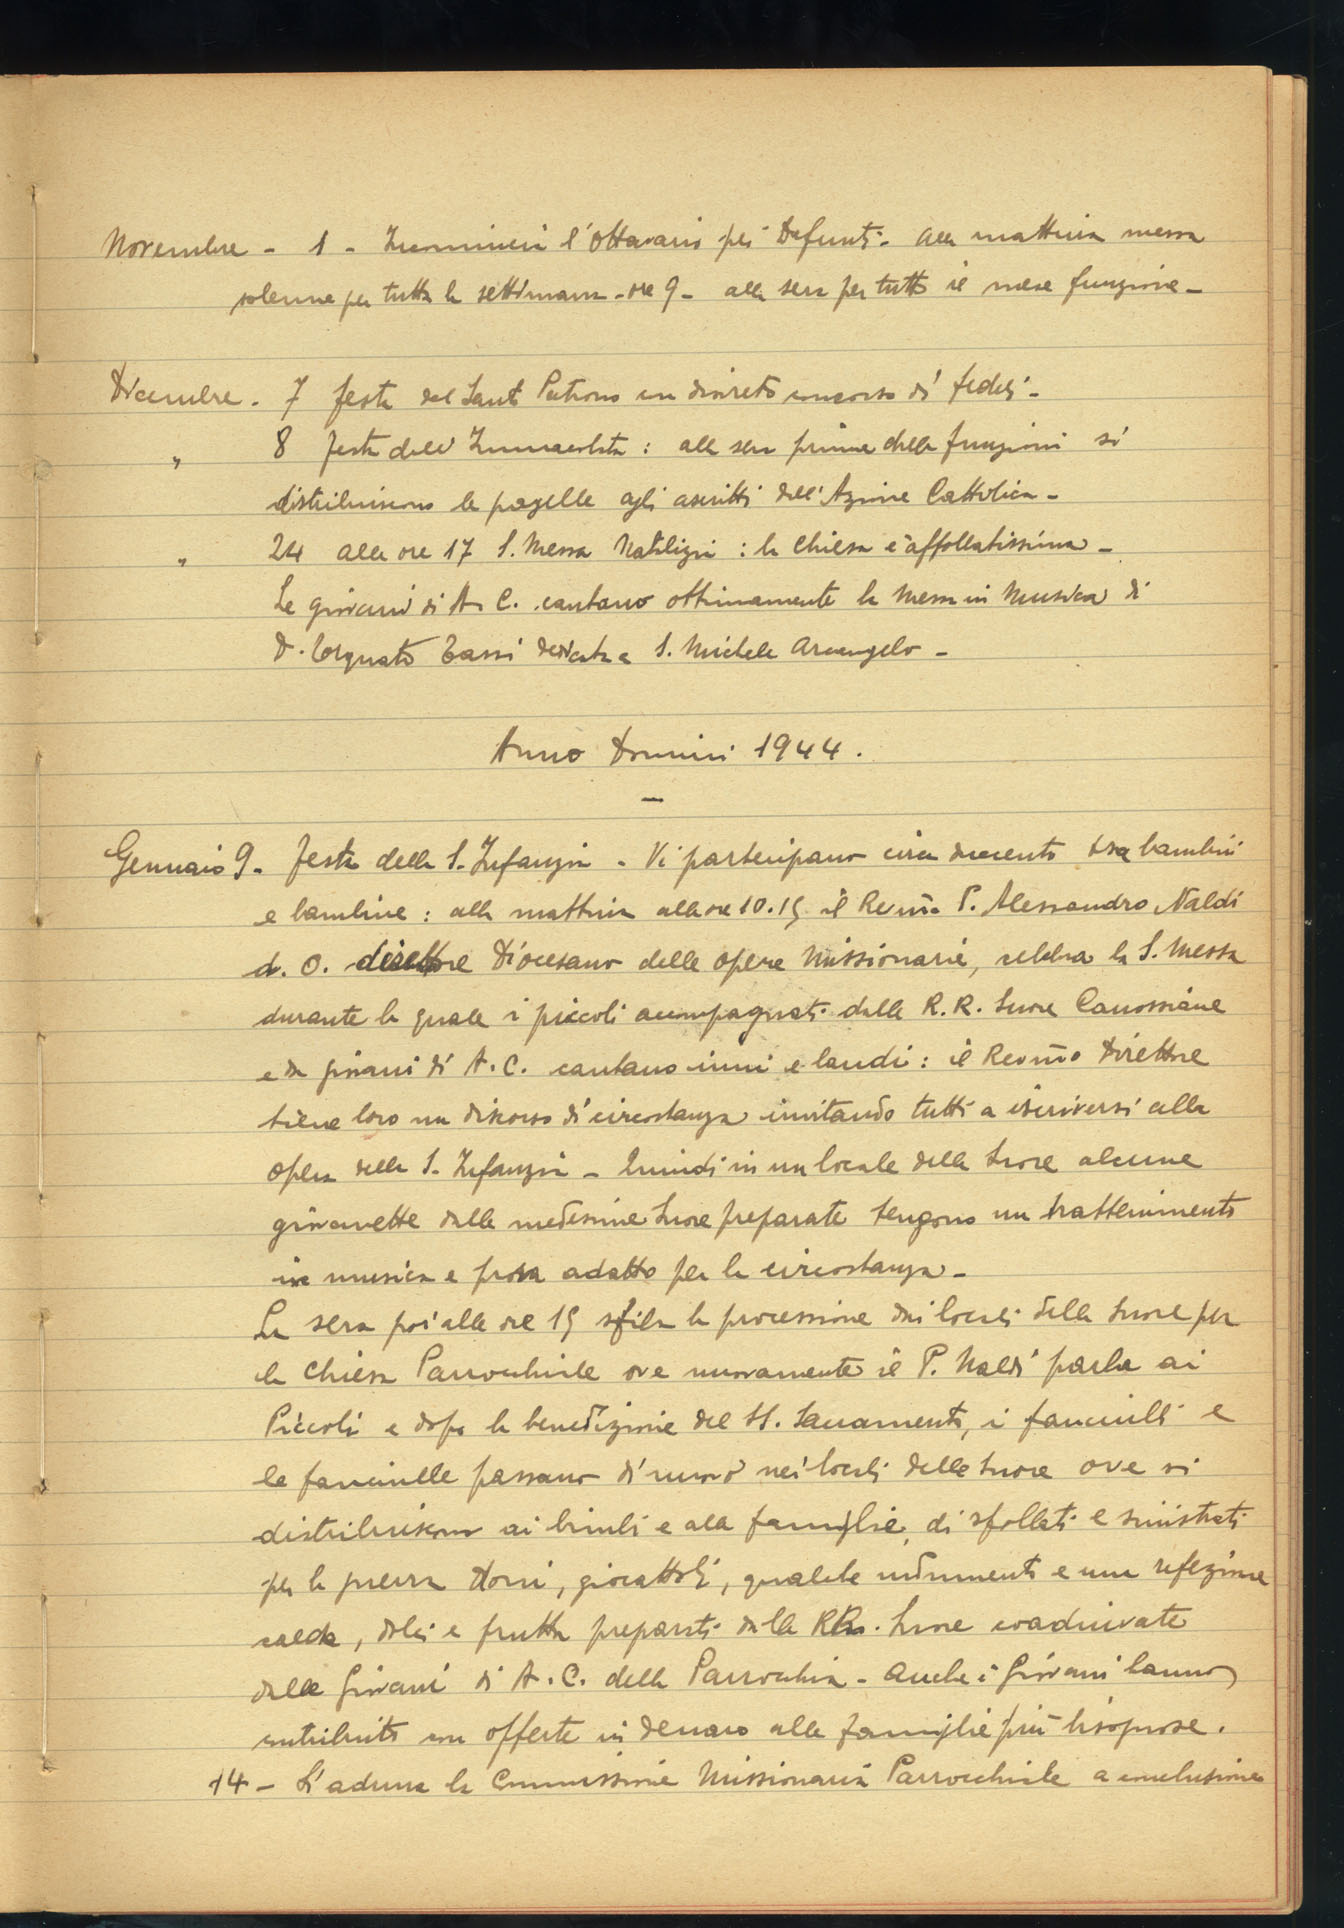 Novembre - 1 - Incomincia l'Ottavario pei Defunti - alla mattina messa
solenne per tutta la settimana - ore 9 - alla sera per tutto il mese funzione -
Dicembre - 7 festa del Santo Patrono con discreto concorso di fedeli -
" 8 festa dell'Immacolata : alla sera prima della funzioni si
distribuiscono le pagelle agli ascritti dell'Azione Cattolica -
" 24 alle ore 17 S. Messa Natalizia : la chiesa è affollatissima -
Le giovani di A. C. cantano ottimamente la Messa in Musica di
D. Torquato Tassi dedicata a S. Michele Arcangelo -
Anno Domini 1944.
Gennaio 9 - festa della S. Infanzia - Vi partecipano circa duecento tra bambini
e bambine : alla mattina alle ore 10.15 il Rev.mo P. Alessandro Naldi
d. O. direttore Diocesano delle opere Missionarie, celebra la S. Messa
durante la quale i piccoli accompagnati dalle R. R. Suore Canossiane
e da giovani di A. C. cantano inni e laudi : il Rev.mo Direttore
tiene loro un discorso di circostanza invitando tutti a iscriversi alla
opera della S. Infanzia - Quindi in un locale delle Suore alcune
giovanette dalle medesime Suore preparate tengono un trattenimento
in musica e prosa adatto per la circostanza -
La sera poi alle ore 15 sfila la processione dai locali delle Suore per
la chiesa Parrocchiale ove nuovamente il P. Naldi parla ai
Piccoli e dopo la benedizione del SS. Sacramento, i fanciulli e
le fanciulle passano di nuovo nei locali delle Suore ove si
distribuiscono ai bimbi e alla famiglie, di sfollati e sinistrati
per la guerra doni, giocattoli, qualche indumento e una refezione
calda, dolci e frutta preparati dalle RR. Suore coadiuvate
dalle Giovani di A. C. della Parrocchia - Anche i Giovani hanno
contribuito con offerte in denaro alle famiglie più bisognose.
14 - S'aduna la Commissione Missionaria Parrocchiale a conclusione